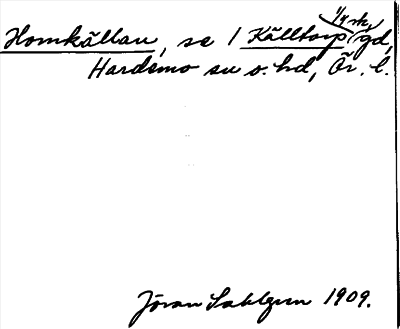 Homkällan, se 1 Källtorp 1/4 sk, gd,
Hardemo sn o. hd, Ör. l.
Jöran Sahlgren 1909.